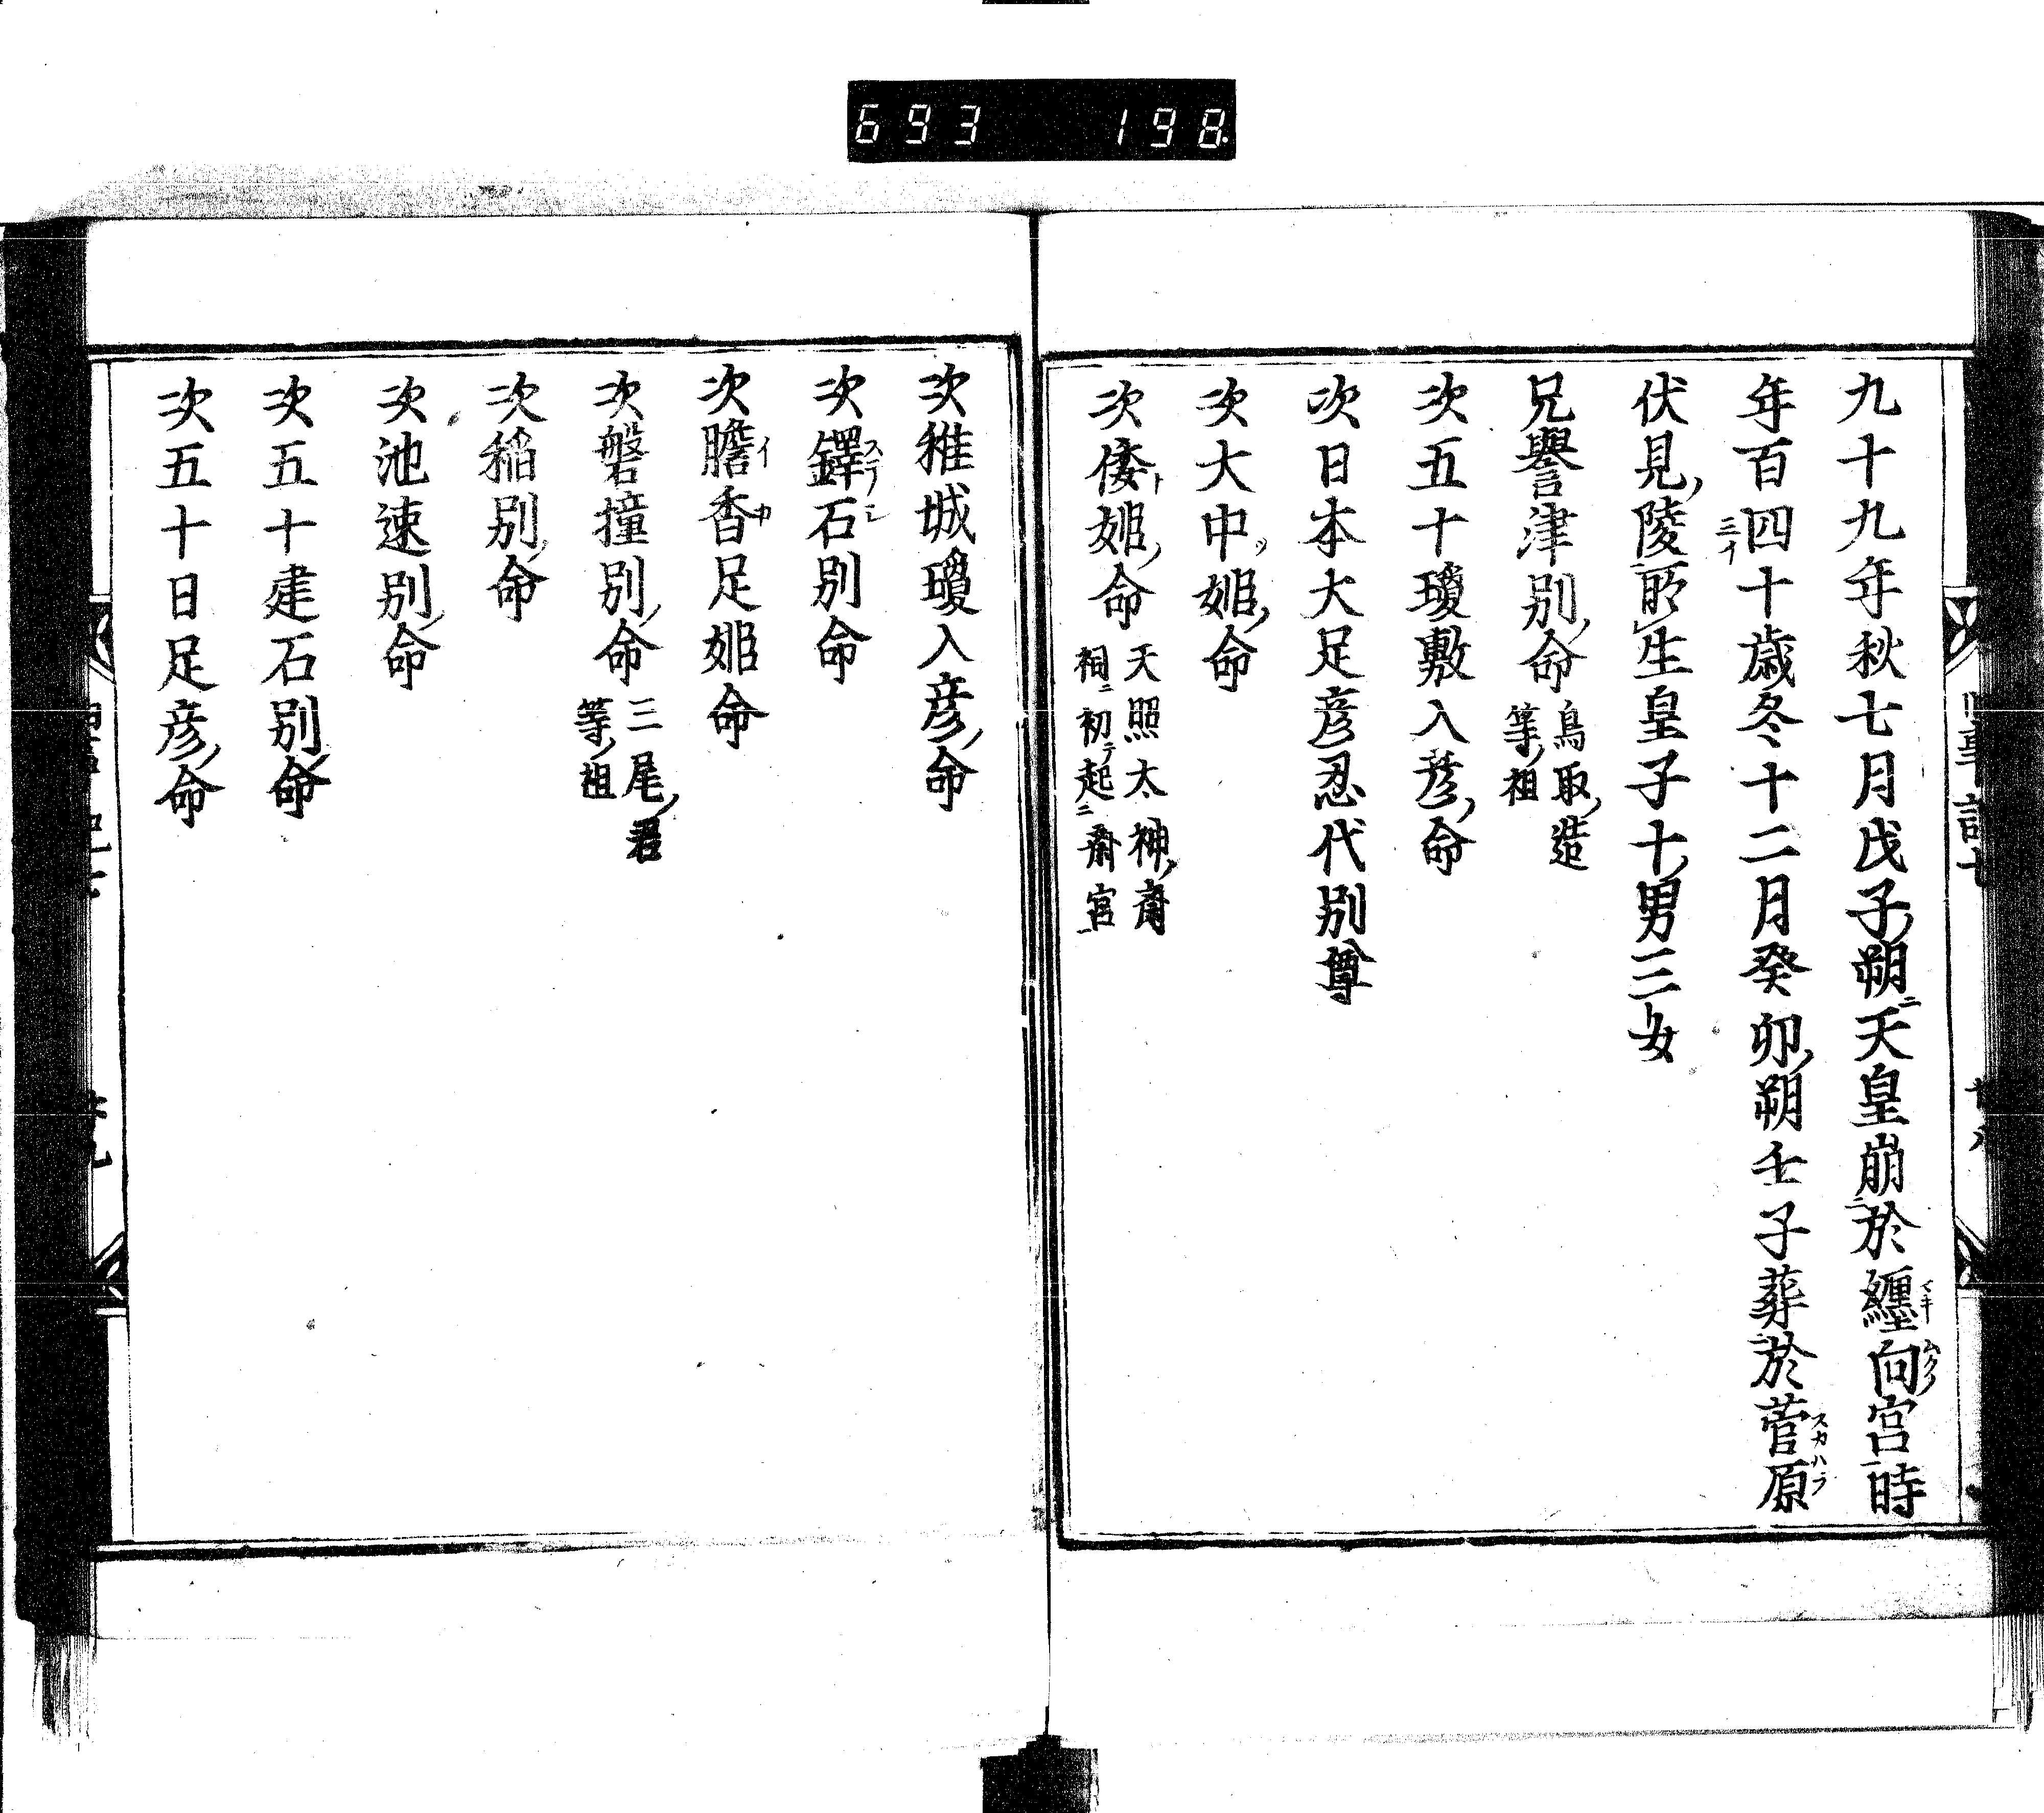 693 198
九十九年秋七月戊子朔天皇崩於纏向宮時
年百四十歳冬十二月癸卯朔壬子葬於菅原
伏見陵所生皇子十男三女
兄譽津別命 鳥取造等祖
次五十瓊敷入彦命
次日本大足彦忍代別尊
次大中姫命
次倭姫命 天照太神齋祠初起齋宮
次稚城瓊入彦命
次鐸石別命
次膽香足姫命
次磐撞別命 三尾君等祖
次稲別命
次池速別命
次五十建石別命
次五十日足彦命